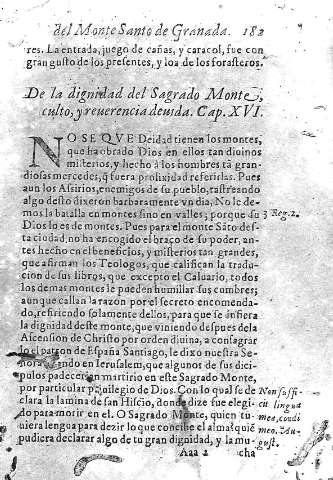 del Monte Santo de Granada. 182
res. La entrada, juego de cañas, y caracol, fue con
gran gusto de los presentes, y loa de los forasteros.
De la dignidad del Sagrado Monte,
culto, y reuerencia deuida. Cap. XVI.
NO SE QVE Deidad tienen los montes,
que ha obrado Dios en ellos tan diuinos
misterios, y hecho à los hombres tã gran-
diosas mercedes, q̃ fuera prolixidad referirlas. Pues
aun los Asirios, enemigos de su pueblo, rastreando
algo desto dixeron barbaramvnte vn dia. No le de-
mos la batalla en montes sino en valles; porque su
3 Reg. 2.
Dios lo es de montes. Pues para el monte Sãto des-
ta ciudad, no ha encogido el braço de su poder, an-
tes hecho en el beneficios, y misterios tan grandes,
que afirman los Teologos, que califican la tradu-
cion de sus libros, que excepto el Caluario, todos
los demas montes le pueden humillar sus cumbres;
aunque callan la razon por el secreto encomenda-
do, refiriendo solamente dellos, para que se infiera
la dignidad deste monte, que viniendo despues de la
Ascension de Christo por orden diuina, a consagrar
lo el patron de España Santiago, le dixo nuestra Se-
ñora estando en Ierusalem, que algunos de sus dici-
pulos padecerian martirio en este Sagrado Monte,
por particular priuilegio de Dios. Con lo qual se de
clara la lamina de san Hiscio, donde dize fue elegi-
do para morir en el. O Sagrado Monte, quien tu-
uiera lengua para dezir lo que concibe el alma! quiẽ
pudiera declarar algo de tu gran dignidad, y la mu-
Non suffi-
cit lingua
mea, cõdi
mea. Au-
gust.
Aaa 2 cha